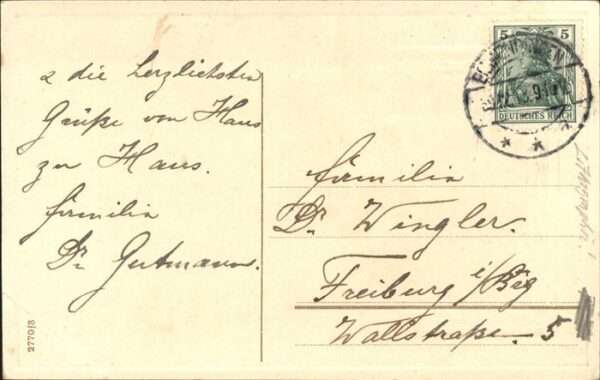 & die herzlichsten
Grüße von Haus
zu Haus.
Familie
Dr. Gutmann.
Familie
Dr. Wingler.
Freiburg i/Brg
Wallstraße 5
5 5
DEUTSCHES REICH
2770/3